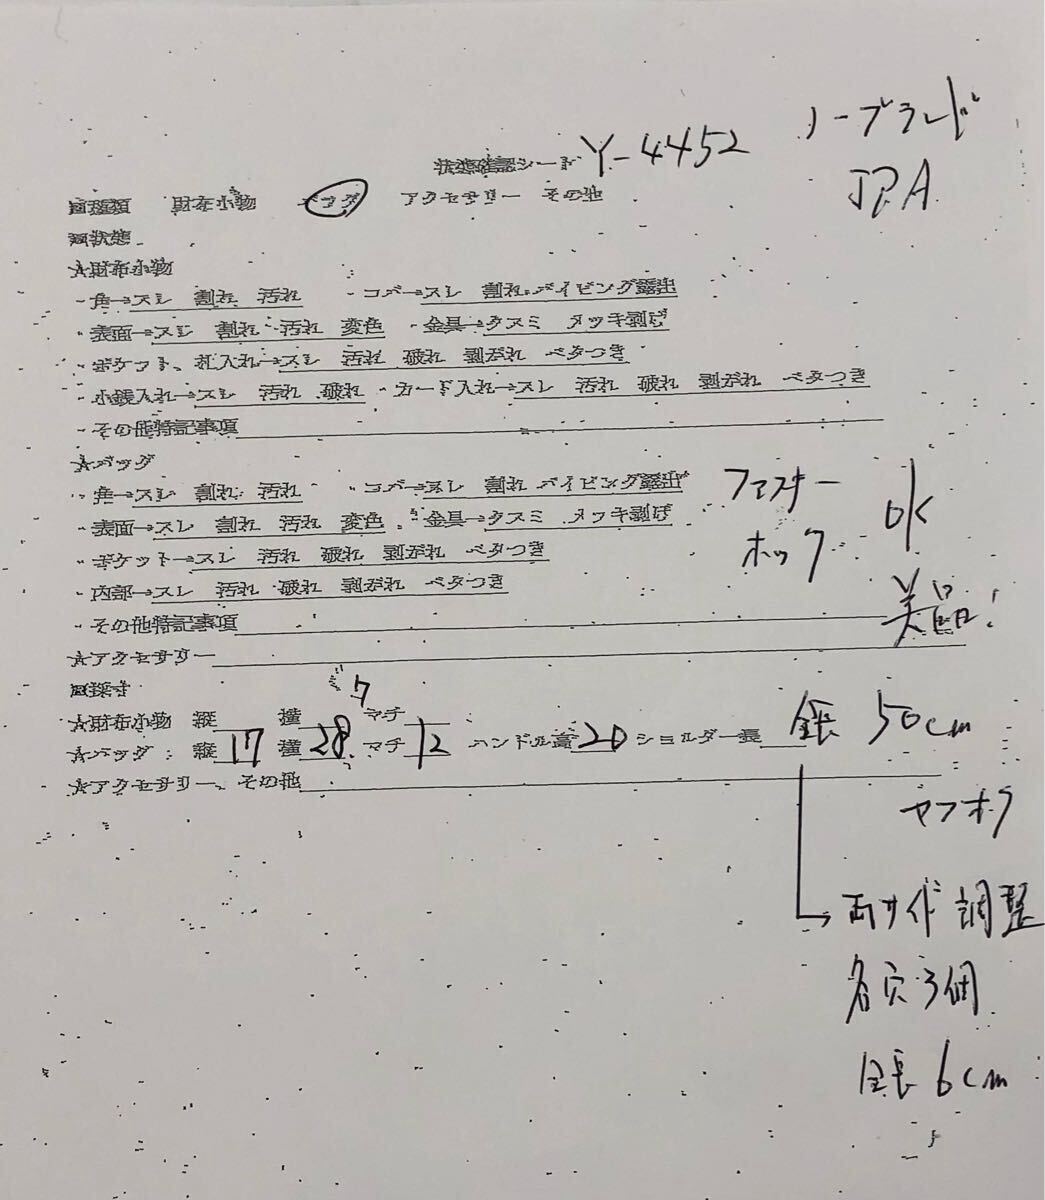 ノーブランド
状態確認シート Y-4452
JPA
■種類 財布小物 バッグ アクセサリー その他
■状態
★財布小物
・角→スレ 割れ 汚れ ・コバ→スレ 割れ パイピング露出
・表面→スレ 割れ 汚れ 変色 ・金具→クスミ メッキ剥げ
・ポケット、札入れ→スレ 汚れ 破れ 剥がれ ベタつき
・小銭入れ→スレ 汚れ 破れ ・カード入れ→スレ 汚れ 破れ 剥がれ ベタつき
・その他特記事項
★バッグ
・角→スレ 割れ 汚れ ・コバ→スレ 割れ パイピング露出
ファスナー
OK
・表面→スレ 割れ 汚れ 変色 ・金具→クスミ メッキ剥げ
・ポケット→スレ 汚れ 破れ 剥がれ ベタつき
ホック
・内部→スレ 汚れ 破れ 剥がれ ベタつき
美品!
・その他特記事項
★アクセサリー
■採寸
★財布小物 縦 横 マチ
★バッグ:縦 17 横 28 マチ 12 ハンドル高 20 ショルダー長 全長 50cm
★アクセサリー、その他
ヤフオク
両サイド調整
各穴3個
全長6cm